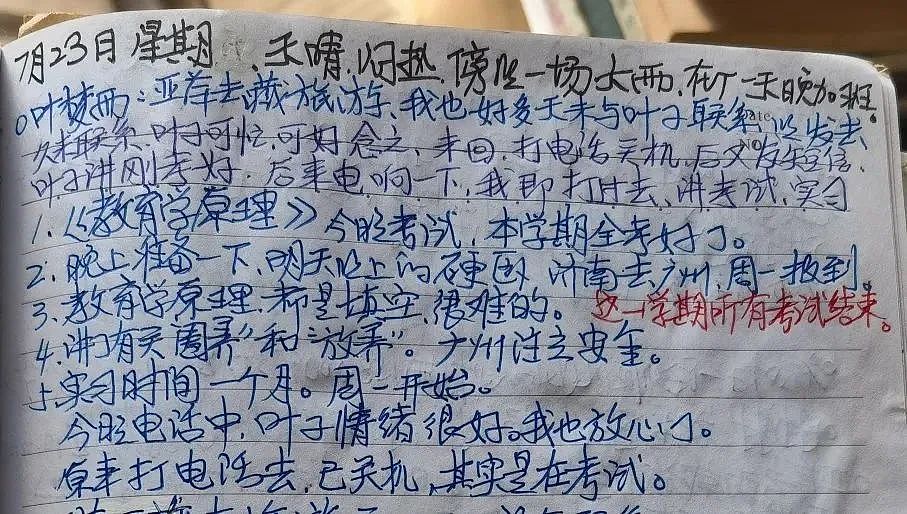 7月23日 星期 、天晴、闷热、傍晚一场大雨、在厂一天晚加班。
叶梦雨:亚萍去藏旅游、我也好多天未与叶子联系、以发去、
久未联系、叶子可忙、可好念之、未回、打电话关机、后又发短信、
叶子讲刚考好、后来电响一下、我即打过去、讲考试、实习
1.《教育学原理》今晚考试,本学期全考好了。
2.晚上准备一下、明天晚上的 济南去广州、周一报到。
3.教育学原理、都是填空、很难的。 这一学期所有考试结束。
4.讲了有关"圈养"和"放养"。广州注意安全。
5.实习时间一个月。周一开始。
今晚电话中,叶子情绪很好。我也放心了。
原来打电话去,已关机,其实是在考试。